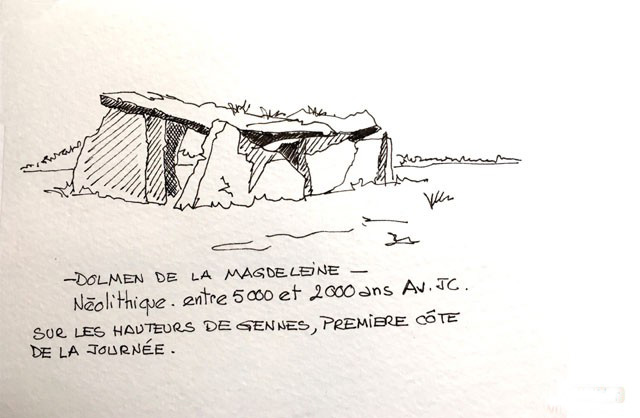 — DOLMEN DE LA MAGDELEINE —
Néolithique. entre 5000 et 2000 ans Av. JC.
SUR LES HAUTEURS DE GENNES, PREMIERE CÔTE
DE LA JOURNÉE.